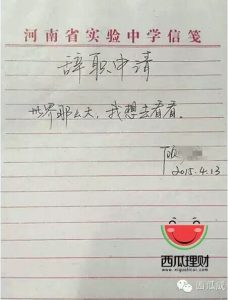 河南省实验中学信笺
辞职申请
世界那么大，我想去看看。
2015.4.13
西瓜理财
www.xiguaLicai.com
西瓜成